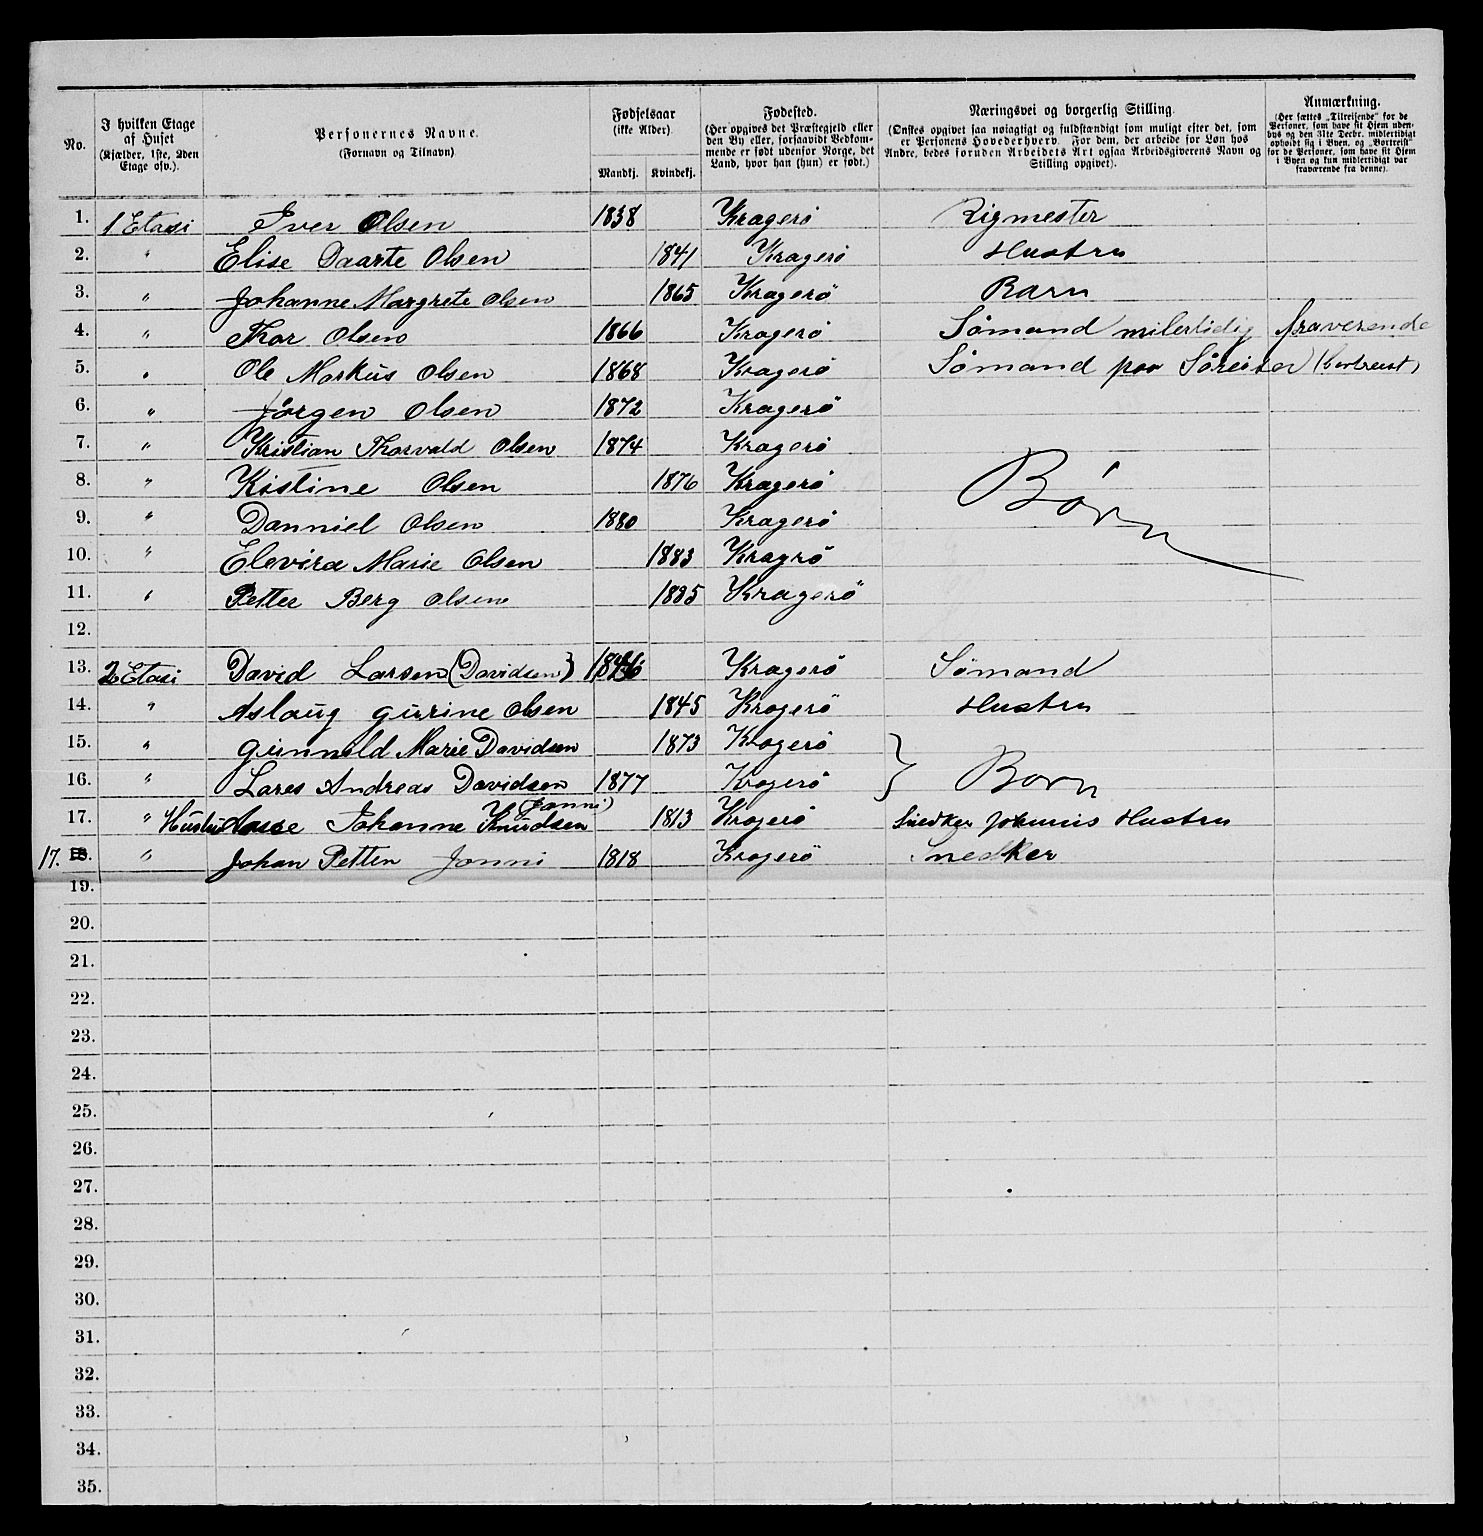 No.
I hvilken Etage af Huset (Kjælder, 1ste, 2den Etage osv.).
Personernes Navne. (Fornavn og Tilnavn)
Fødselsaar (ikke Alder). Mandkj. Kvindekj.
Fødested. (Her opgives det Præstegjeld eller den By eller, forsaavidt Vedkommende er født udenfor Norge, det Land, hvor han (hun) er født.)
Næringsvei og borgerlig Stilling. (Ønskes opgivet saa nøiagtigt og fuldstændigt som muligt efter det, som er Personens Hovederhverv. For dem, der arbeide for Løn hos Andre, bedes foruden Arbeidets Art ogsaa Arbeidsgiverens Navn og Stilling opgivet).
Anmærkning. (Her sættes „Tilreisende“ for de Personer, som have sit Hjem udenbys og den 31te Decbr. midlertidigt opholdt sig i Byen, og „Bortreist“ for de Personer, som have sit Hjem i Byen og kun midlertidigt var fraværende fra denne).
1. 1 Etasi Iver Olsen 1838 Kragerö Rigmester
2. " Elise Daarte Olsen 1841 Kragerö Hustru
3. " Johanne Margrete Olsen 1865 Kragerö Barn
4. " Thor Olsen 1866 Kragerö Sömand milertidig fraverende
5. " Ole Markus Olsen 1868 Kragerö Sömand paa Söreiser (bortreist)
6. " Jörgen Olsen 1872 Kragerö
7. " Kristian Thorvald Olsen 1874 Kragerö
8. " Kistine Olsen 1876 Kragerö Børn
9. " Danniel Olsen 1880 Kragerö
10. " Elevira Marie Olsen 1883 Kragrö
11. " Petter Berg Olsen 1885 Kragerö
12.
13. 2 Etasi David Larsen (Davidsen) Kragerö Sömand
14. " Aslaug Gurine Olsen 1845 Kragerö Hustru
15. " Gunnild Marie Davidsen 1873 Kragerö
16. " Lares Andreas Davidsen 1877 Kragerö } Born
(Janni)
17. " Hustru Johanne Knudsen 1813 Kragerö Snedker Hustru
17. 18. " Johan Petter Janni 1818 Kragerö Snedker
19.
20.
21.
22.
23.
24.
25.
26.
27.
28.
29.
30.
31.
32.
33.
34.
35.